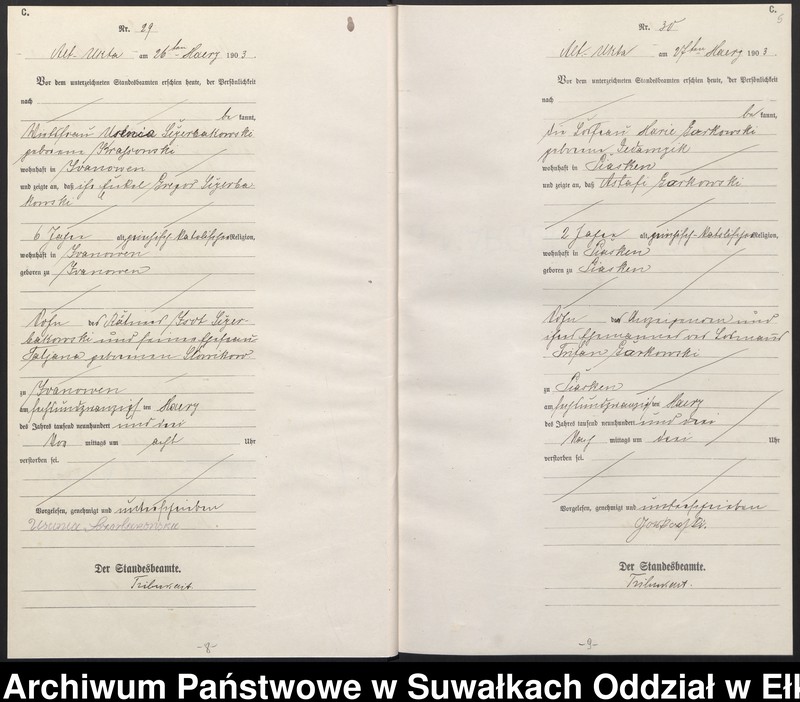 C.
Nr. 29
Alt-Ukta am 26ten Maerz 1903.
Vor dem unterzeichneten Standesbeamten erschien heute, der Persönlichkeit
nach
bekannt,
geborene
wohnhaft in Iwanowen
und zeigte an, daß ihr Enkel Gregor
kowski
6 Jahre alt, griechisch-katolischer Religion,
wohnhaft in Iwanowen
geboren zu Iwanowen
Sohn des
und seiner Ehefrau
Tatjana geborenen Slowikow
zu Iwanowen
am sechsundzwanzigsten Maerz
des Jahres tausend neunhundert und drei
Vor mittags um acht Uhr
verstorben sei.
Vorgelesen, genehmigt und unterschrieben
Der Standesbeamte.
-8-
C.
5
Nr. 30
Alt-Ukta am 27ten Maerz 1903
Vor dem unterzeichneten Standesbeamten erschien heute, der Persönlichkeit
nach
bekannt,
die Losfrau Marie Zarkowski
geborene Jedamzik
wohnhaft in Piasken
und zeigte an, daß Astafi Zarkowski
2 Jahre alt, griechisch-katolischer Religion,
wohnhaft in Piasken
geboren zu Piasken
Sohn der Anzeigenden und
ihres Ehemannes des Losmanns
Trifan Zarkowski
zu Piasken
am sechsundzwanzigsten Maerz
des Jahres tausend neunhundert und drei
Nach mittags um drei Uhr
verstorben sei.
Vorgelesen, genehmigt und unterschrieben
Der Standesbeamte.
-9-
Archiwum Państwowe w Suwałkach Oddział w Eł